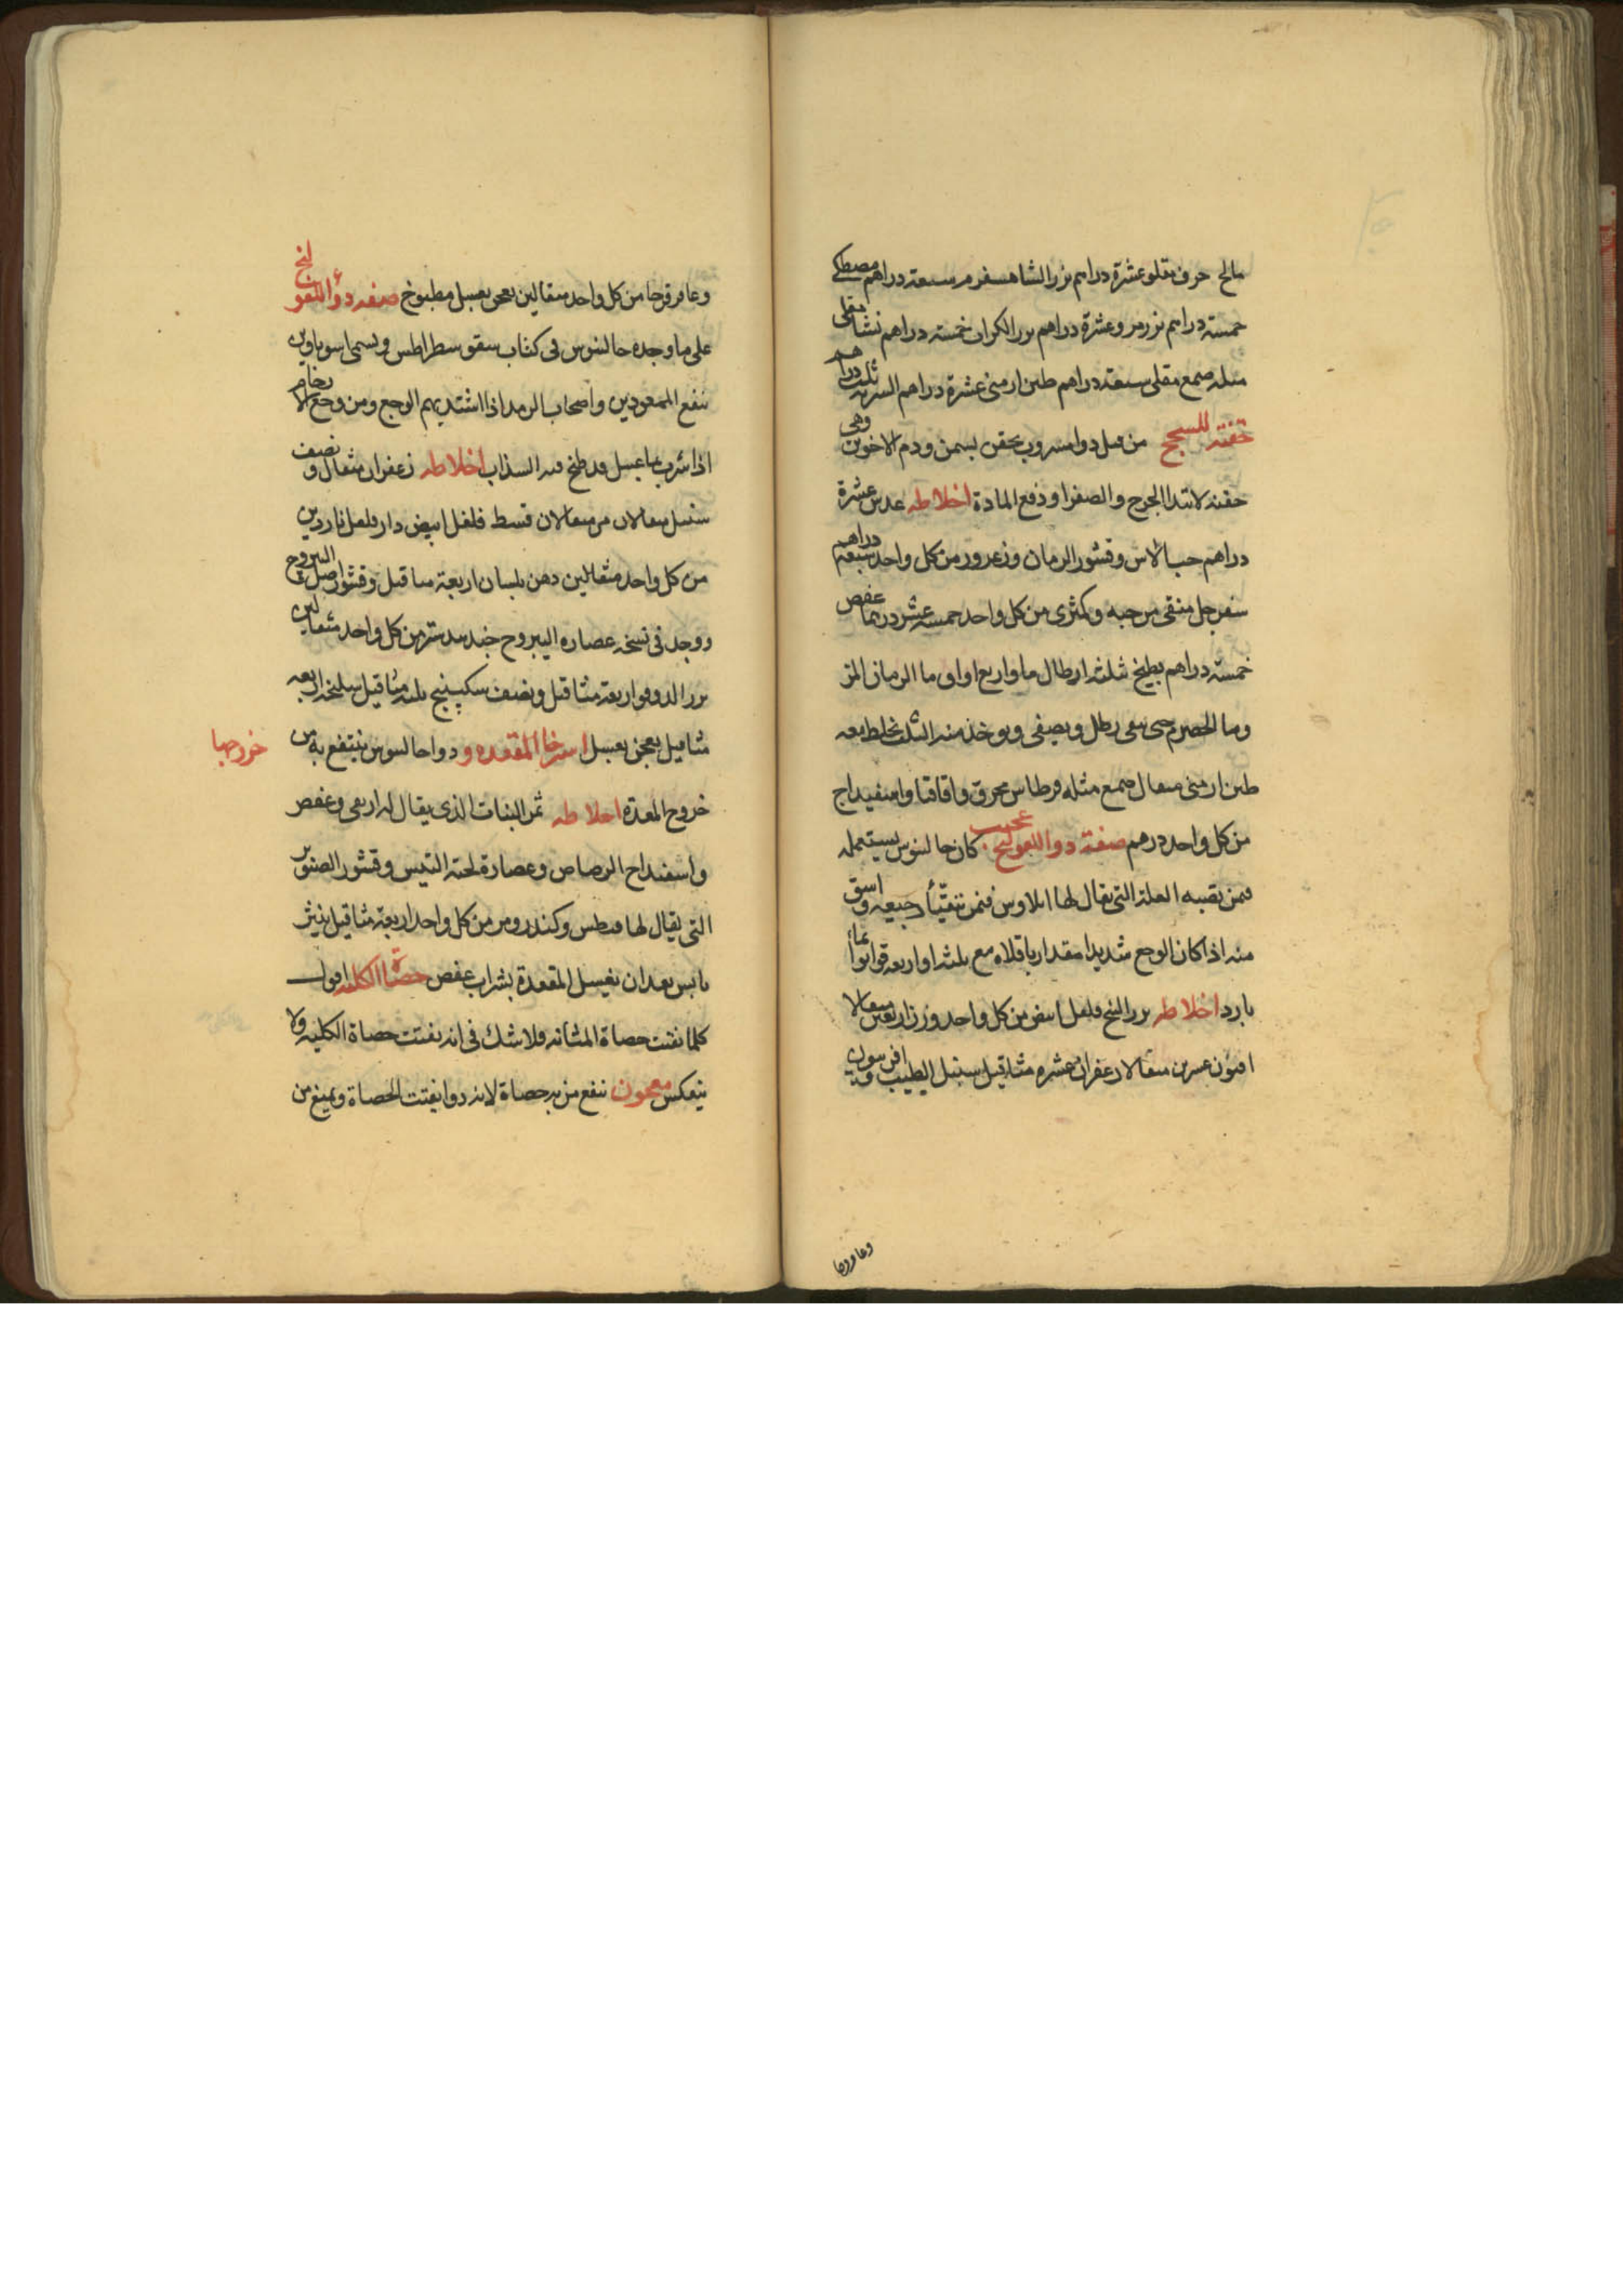 مالح حرف مقلو عشرة دراهم بزر الشاهسفرم سبعة دراهم مصطكى
خمسة دراهم بزر مرو عشرة دراهم بزر الكراث خمسة دراهم نشا مقلى
مثله صمغ مقلى سبعة دراهم طين ارمنى عشرة دراهم الشربة ثلث دراهم
حقنة للسحج من قبل دوا مشروب يحقن بسمن ودم الاخوين وهى
حقنة لابتدا الجرح والصفرا ودفع المادة اخلاطه عدس عشرة
دراهم حب الاس وقشور الرمان وزعرور من كل واحد سبعة دراهم
سفرجل منقى من حبه وكمثرى من كل واحد خمسة عشر درهما عفص
خمسة دراهم يطبخ بثلثة ارطال ما واربع اواق ما الرمان المز
وما الحصرم حتى يبقى رطل ويصفى ويوخذ منه الثلث يخلط معه
طين ارمنى مثقال صمغ مثله قرطاس محرق واقاقيا واسفيداج
من كل واحد درهم صفة دوا القولنج عجيب كان جالينوس يستعمله
فمن تصيبه العلة التى يقال لها ايلاوس فمن يتقيأ رجيعه واسق
منه اذا كان الوجع شديدا مقدار باقلاه مع ثلثة او اربعة قوانوا بماء
بارد اخلاطه بزر البنج فلفل ابيض من كل واحد وزن اربعين مثقالا
افيون عشرين مثقالا زعفران عشرة مثاقيل سنبل الطيب افربيون
وعاقرقرحا
وعاقرقرحا من كل واحد مثقالين يعجن بعسل مطبوخ صفة دواء القولنج
على ما وجده جالينوس فى كتاب سقوسطراطس ويسمى
ينفع الممعودين واصحاب الرمد اذا اشتد بهم الوجع ومن وجع الارحام
اذا شرب بما عسل قد طبخ فيه السذاب اخلاطه زعفران مثقال ونصف
سنبل مثقالان مر مثقالان قسط فلفل ابيض دارفلفل ناردين
من كل واحد مثقالين دهن بلسان اربعة مثاقيل وقشور اصل اليبروح
ووجد فى نسخة عصارة اليبروح جندبيدستر من كل واحد مثقالين
بزر الدوقو اربعة مثاقيل ونصف سكبينج ثلثة مثاقيل سليخة اربعة
مثاقيل يعجن بعسل استرخا المقعدة و دوا جالينوس ينتفع به من
خروجها
خروج المعدة اخلاطه ثمر النبات الذى يقال له اريعى وعفص
واسفيداج الرصاص وعصارة لحية التيس وقشور الصنوبر
التى يقال لها وكندر ومر من كل واحد اربعة مثاقيل ينثر
يابس بعد ان يغسل المقعدة بشراب عفص حصاة الكلية اقول
كلما يفتت حصاة المثانة ولا شك فى انه يفتت حصاة الكلية ولا
ينعكس معجون ينفع من به حصاة لانه دوا يفتت الحصاة ويمنع من